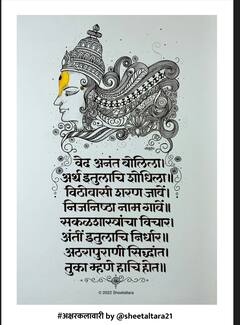 वेद अनंत बोलिला।
अर्थ इतुलाचि शोधिला।
विठोवासी शरण जावें।
निजनिष्ठा नाम गावें॥
सकळशास्त्रांचा विचार।
अंतीं इतुलाचि निर्धार॥
अठरापुराणी सिद्धांत।
तुका म्हणे हाचि हेत॥
© 2022 Sheetaltara
#अक्षरकलावारी by @sheetaltara21